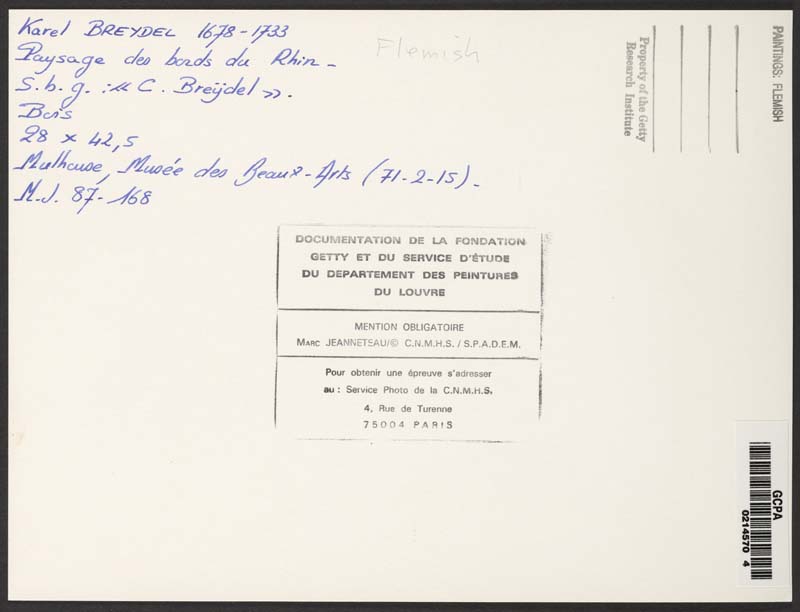 Karel BREYDEL 1678-1733
Paysage des bords du Rhin -
S.b.g. : « C. Breÿdel ».
Bois
28 x 42,5
Mulhouse, Musée des Beaux-Arts (71-2-15).
M.J. 87-168
Flemish
Property of the Getty
Research Institute
PAINTINGS: FLEMISH
DOCUMENTATION DE LA FONDATION
GETTY ET DU SERVICE D'ÉTUDE
DU DEPARTEMENT DES PEINTURES
DU LOUVRE
MENTION OBLIGATOIRE
MARC JEANNETEAU/© C.N.M.H.S. / S.P.A.D.E.M.
Pour obtenir une épreuve s'adresser
au : Service Photo de la C.N.M.H.S.
4, Rue de Turenne
75004 PARIS
GCPA
0214570 4